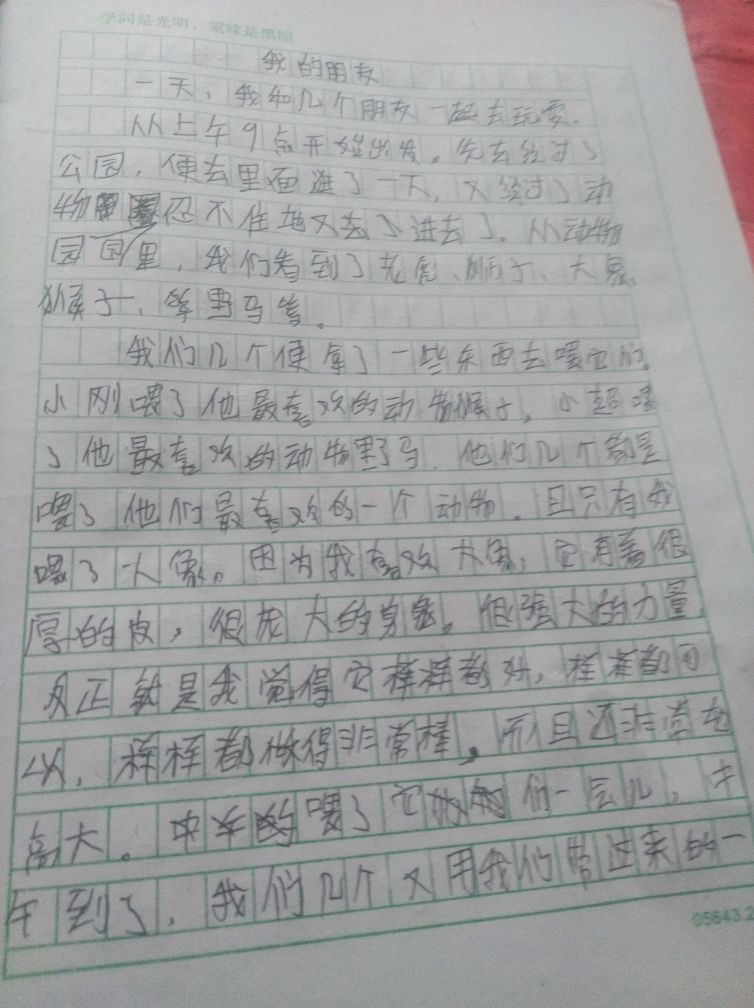 学问是光明，蒙昧是黑暗
我的朋友
一天，我和几个朋友一起去玩耍。
从上午9点开始出发。先去经过了
公园，便去里面逛了一天，又经过了动
物忍不住地又去了进去了。从动物
园里，我们看到了老虎、狮子、大象、
猴子、野马等。
我们几个便拿了一些东西去喂它们。
小刚喂了他最喜欢的动物猴子，小超喂
了他最喜欢的动物野马。他们几个都是
喂了他们最喜欢的一个动物。且只有我
喂了大象。因为我喜欢大象，它有着很
厚的皮，很庞大的身象。很强大的力量，
反正就是我觉得它样样都好，样样都可
以，样样都做得非常棒，而且还非常
高大。喂了它们一会儿，中
午到了，我们几个又用我们带过来的一
05643.2